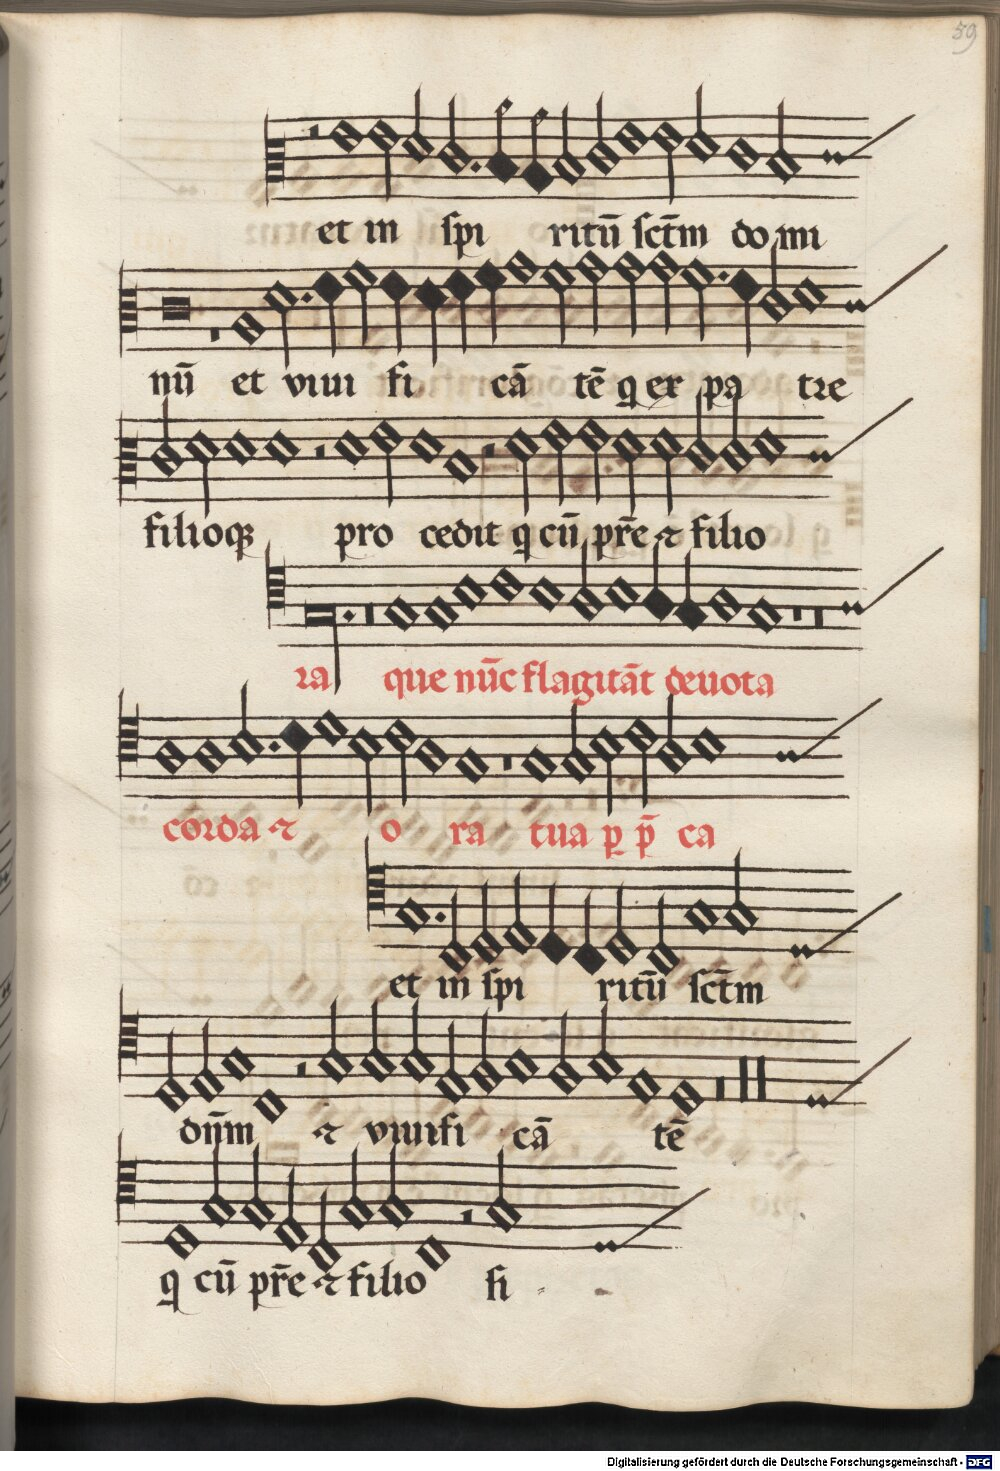 59
et in spi ritū sctm̄ do mi
nū et viui fi cā tē q ex pa tre
filioqꝫ pro cedit q cū pr̄e ⁊ filio
ra que nūc flagitāt deuota
corda ⁊ o ra tua ꝑ p̄ ca
et in spi ritū sctm̄
dn̄m ⁊ viuifi cā tē
q cū pr̄e ⁊ filio si
Digitalisierung gefördert durch die Deutsche Forschungsgemeinschaft - DFG